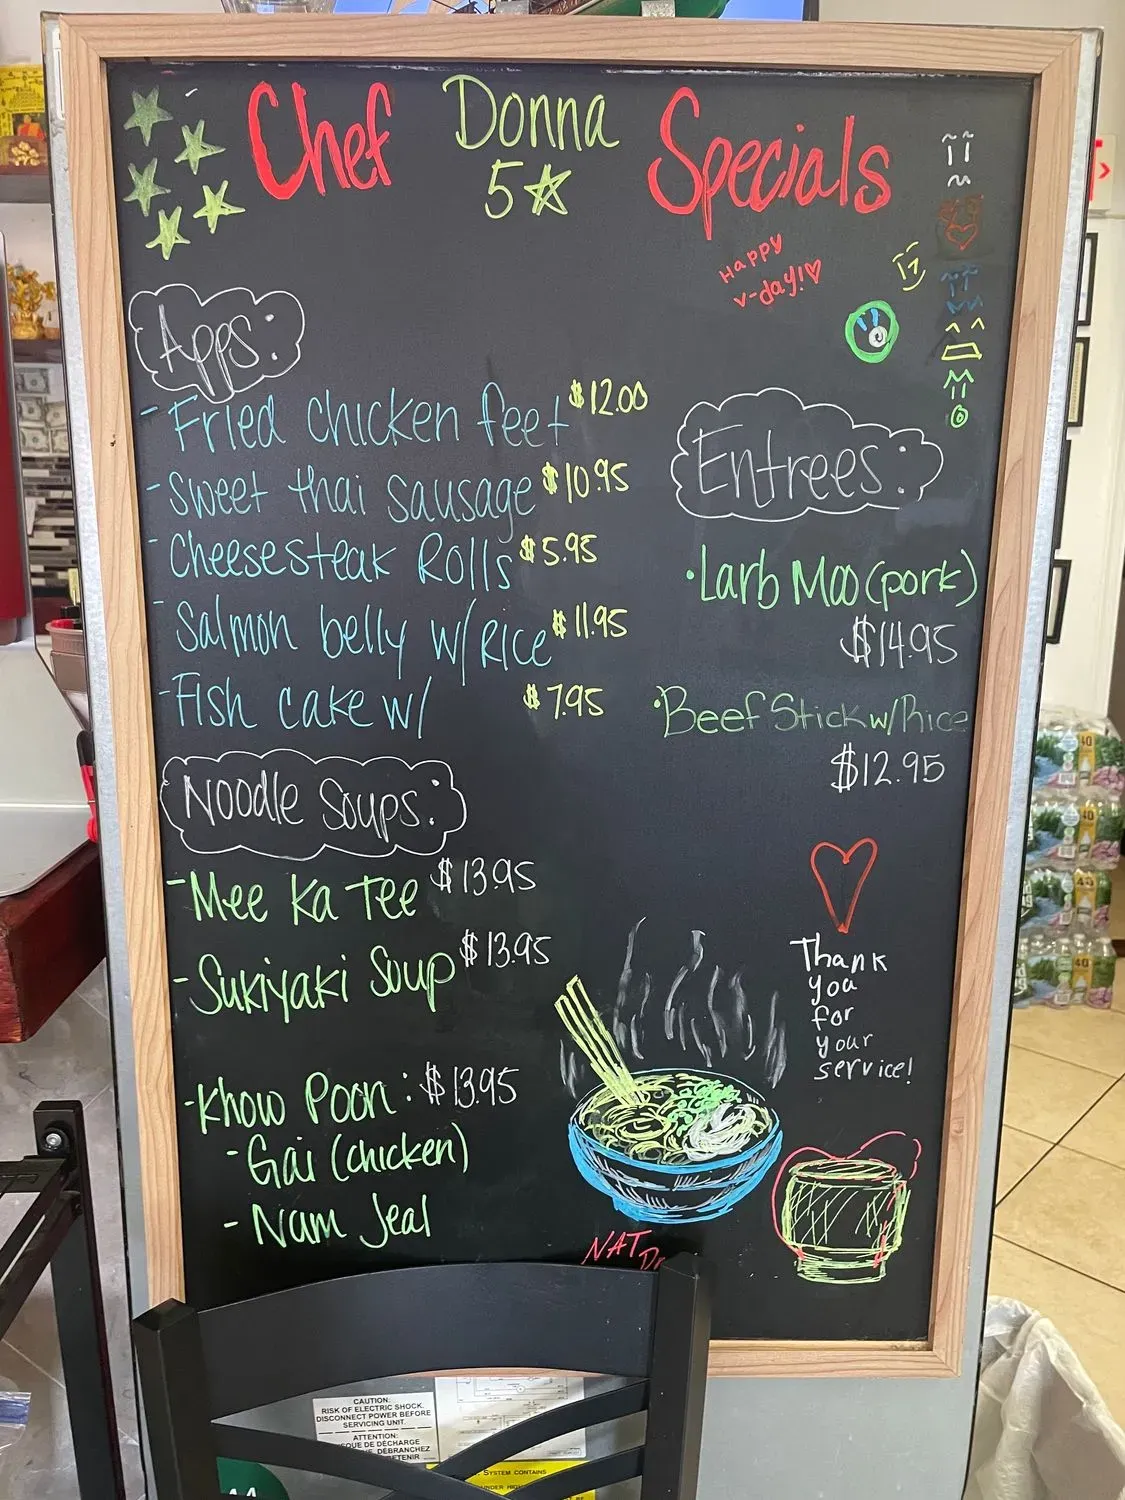 Chef Donna Specials
5☆
Happy
v-day!♡
Apps:
- Fried chicken feet $12.00
- Sweet thai sausage $10.95
- Cheesesteak Rolls $5.95
- Salmon belly w/Rice $11.95
- Fish cake w/ $7.95
Noodle Soups:
- Mee Ka Tee $13.95
- Sukiyaki Soup $13.95
- Khow Poon: $13.95
- Gai (chicken)
- Nam Jeal
Entrees:
• Larb Moo (pork)
$14.95
• Beef Stick w/Rice
$12.95
Thank
you
for
your
service!
NAT
CAUTION:
RISK OF ELECTRIC SHOCK.
DISCONNECT POWER BEFORE
SERVICING UNIT.
ATTENTION:
DE DÉCHARGE
DÉBRANCHEZ
SYSTEM CONTAINS
40
40
40
40